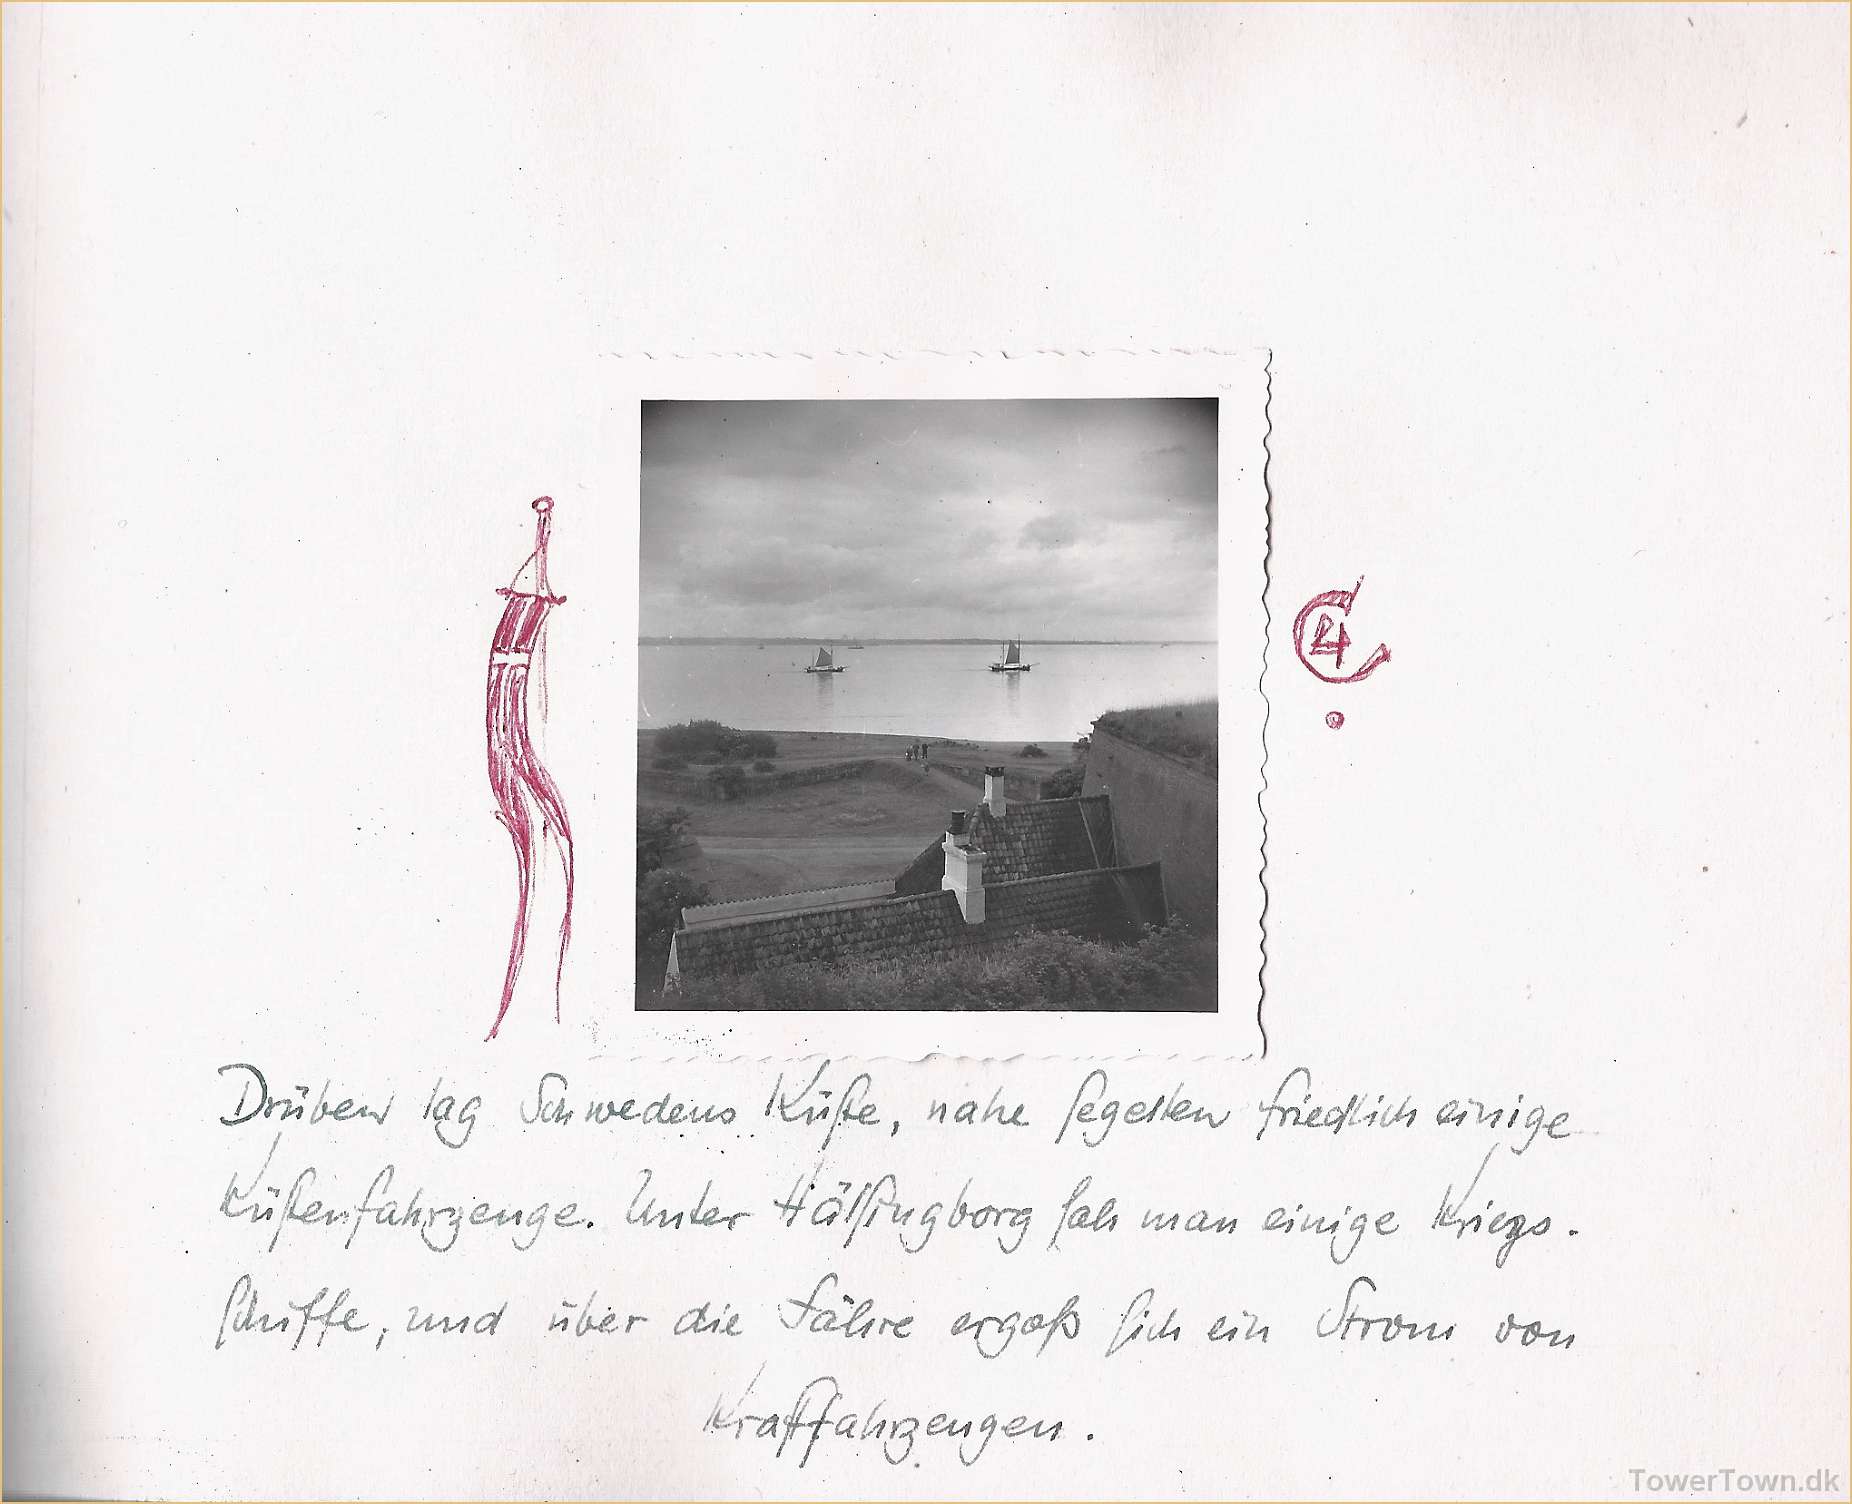 Drüben lag Schwedens Küste, nahe segelten friedlich einige
Küstenfahrzeuge. Unter Hälsingborg sah man einige Kriegs-
schiffe, und über die Fähre ergoß sich ein Strom von
Kraftfahrzeugen.
TowerTown.dk